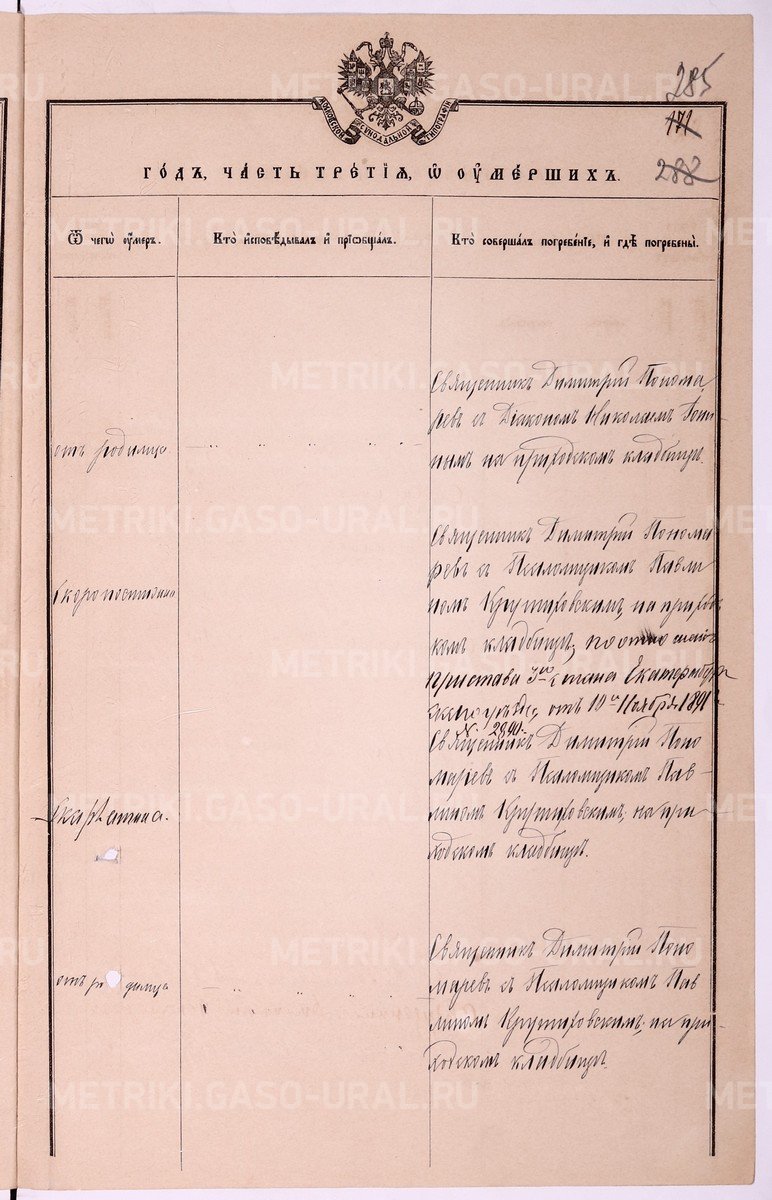 285
171
288
МОСКОВСКОЙ СѴНОДАЛЬНОЙ ТИПОГРАФІИ
ГО́ДЪ, ЧА́СТЬ ТРЕ́ТІѦ, Ѡ҆ ОУ҆МЕ́РШИХЪ.
Ѿ чегѡ̀ оу҆́меръ.
Кто̀ и҆сповѣ́дывалъ и҆ прїѡбща́лъ.
Кто̀ соверша́лъ погребе́нїе, и҆ гдѣ̀ погребены̀.
отъ родимца
Священникъ Димитрій Понома
ревъ съ Діакономъ Николаемъ
нымъ на приходскомъ кладбищѣ.
Скоропостижно
Священникъ Димитрій Понома
ревъ съ Псаломщикомъ Павли
номъ Крутиховскимъ, на приход
комъ кладбищѣ, по отно
Пристава 3го стана Екатеринбург
уѣзда, отъ 10го Ноября 1891
№ 2890.
Скарлатина.
Священникъ Димитрій Поно
маревъ съ Псаломщикомъ Пав-
линомъ Крутиховскимъ, на при
ходскомъ кладбищѣ.
отъ родимца
Священникъ Димитрій Поно
маревъ съ Псаломщикомъ Пав
линомъ Крутиховскимъ, на при
ходскомъ кладбищѣ.
METRIKI.GASO-URAL.RU